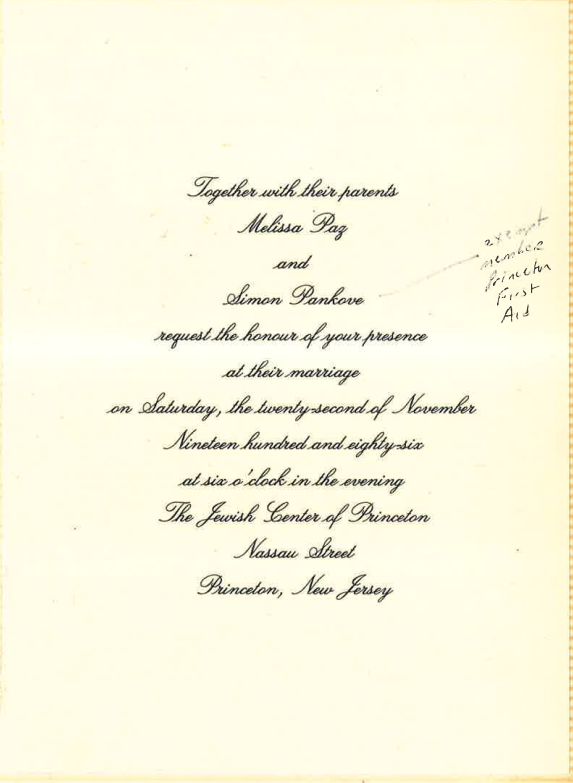 Together with their parents
Melissa Paz
and
Simon Pankove
request the honour of your presence
at their marriage
on Saturday, the twenty-second of November
Nineteen hundred and eighty-six
at six o'clock in the evening
The Jewish Center of Princeton
Nassau Street
Princeton, New Jersey
exempt
member
Princeton
First
Aid